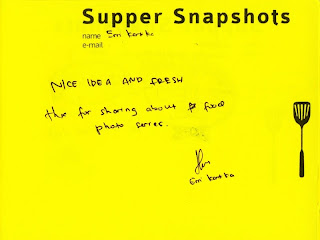 Supper Snapshots
name Emi
e-mail
NICE IDEA AND FRESH
thx for sharing about food
photo series..
Emi